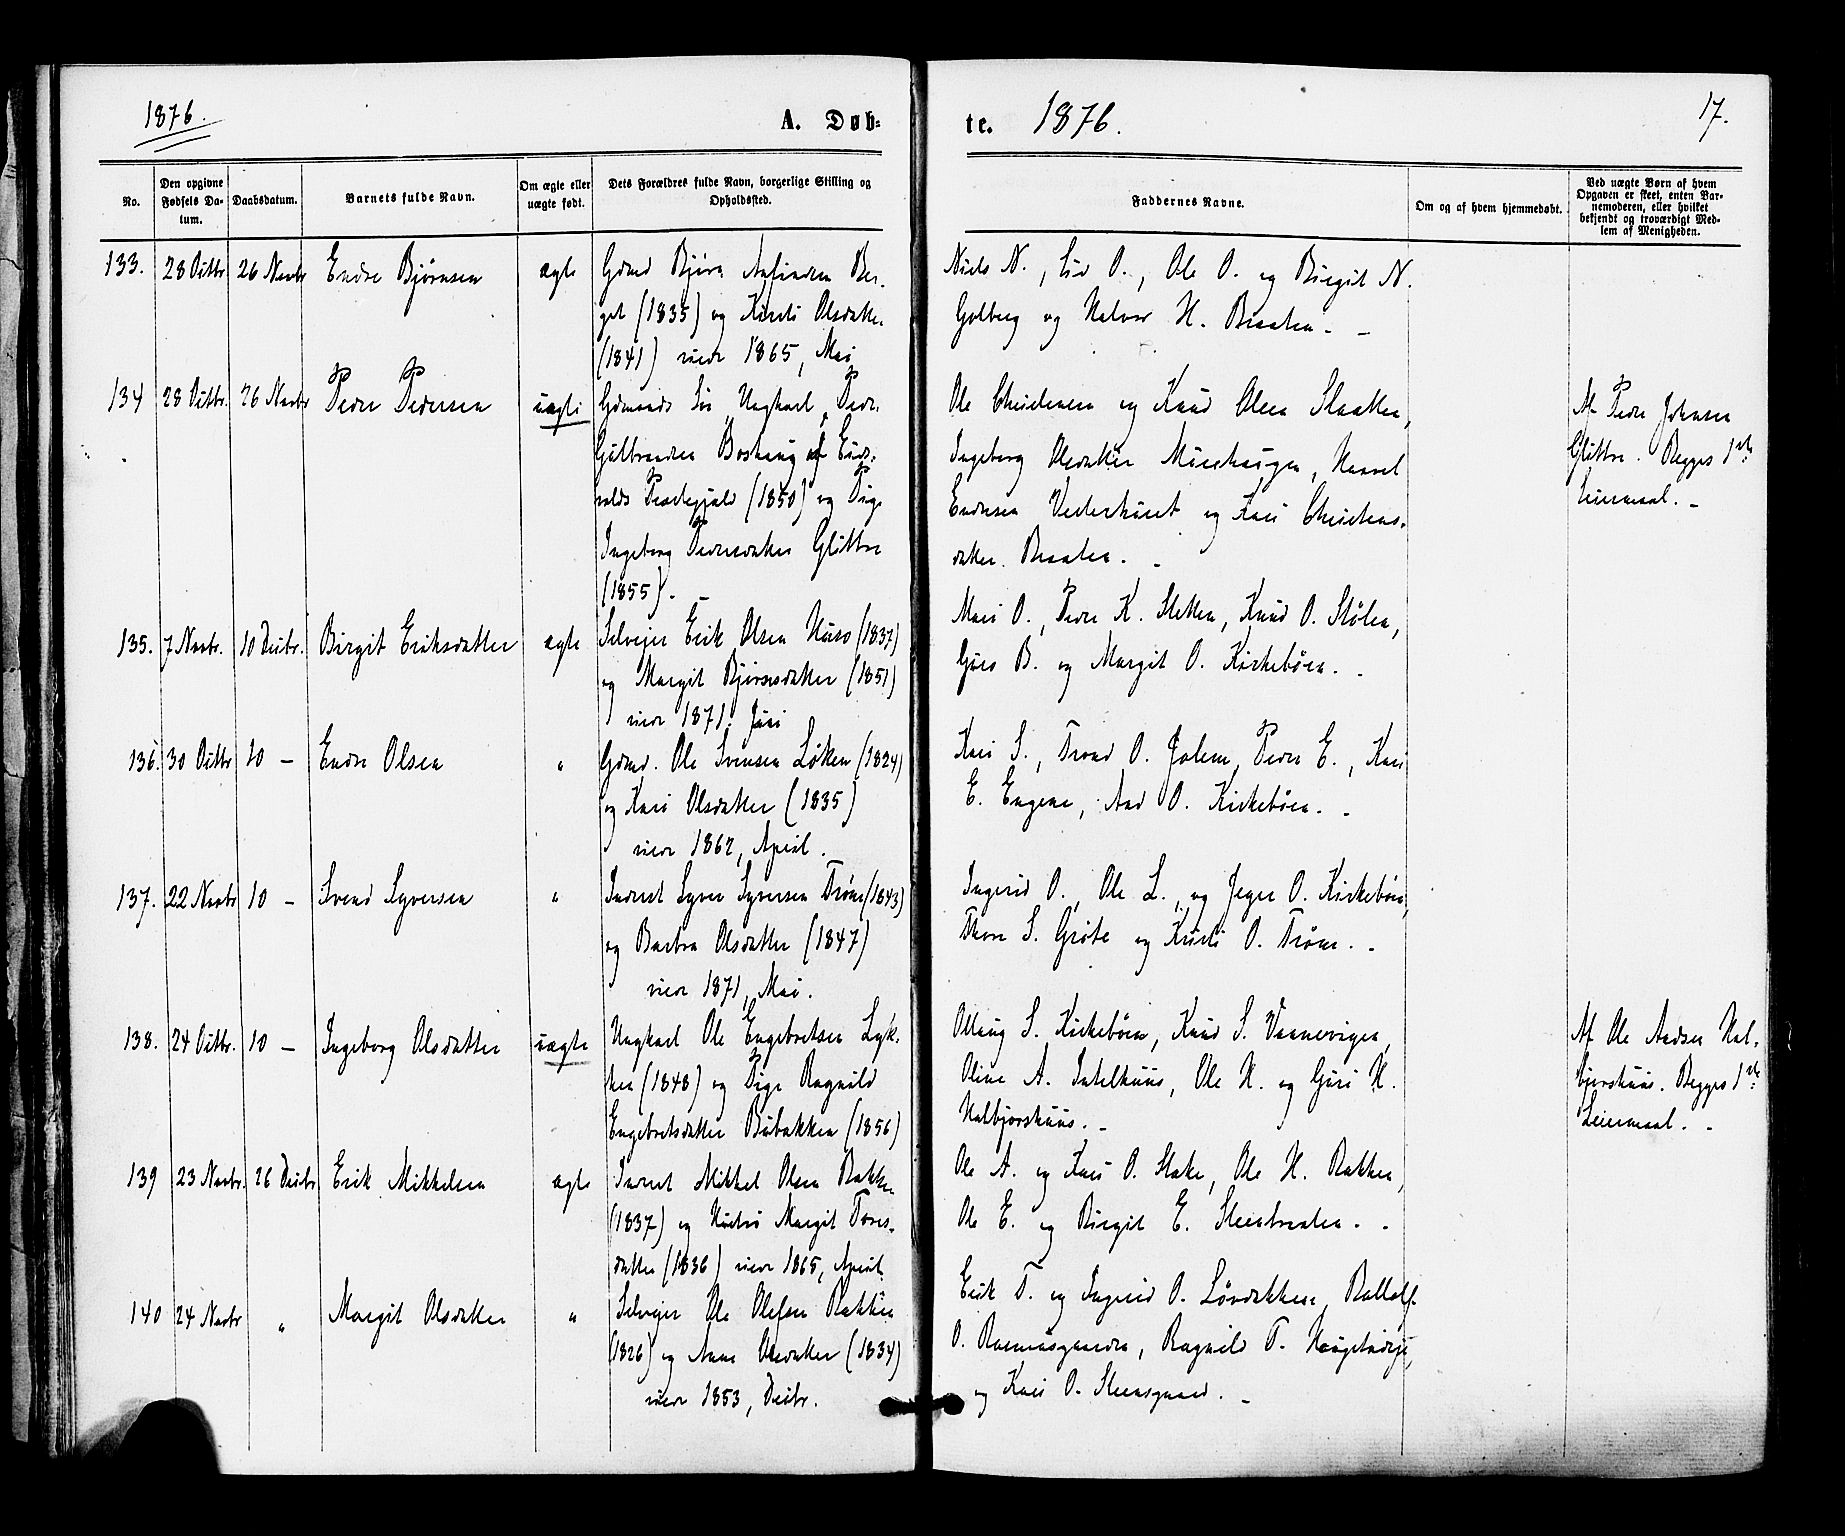 1876.
A. Døb-
te. 1876.
17.
No.
Den opgivne Fødsels Da-tum.
Daabsdatum.
Barnets fulde Navn.
Om ægte eller uægte født.
Dets Forældres fulde Navn, borgerlige Stilling og Opholdssted.
Faddernes Navne.
Om og af hvem hjemmedøbt.
Ved uægte Børn af hvem
Opgaven er skeet, enten Bar-
nemoderen, eller hvilket
bekjendt og troværdigt Med-
lem af Menigheden.
133. 28 Octbr 26 Novbr Endre Bjørnsen ægte Gdmd Bjørn Anfindsen Ber-
get (1835) og Kirsti Olsdatter
(1841) viede 1865, Mai
Niels N., Liv O., Ole O. og Birgit N.
Golberg og Halvor H. Braaten. -
134 28 Octbr. 26 Novbr Peder Pedersen uægte Gdmands Søn Ungkarl, Peder
Gulbrandsen af Eids-
volds Præstegjeld (1850) og Pige
Ingeborg Pedersdatter Glittre
(1855). -
Ole Christensen og Knud Olsen Slaatten,
Ingeborg Olsdatter, Haavel
Endresen og Kari Christens-
datter Braaten. -
Af Peder Johnsen
Glittre. Begges 1ste
Leiermaal. -
135. 7 Novbr. 10 Decbr. Birgit Eriksdatter ægte Selveier Erik Olsen Huso (1837)
og Margit Bjørnsdatter (1851)
viede 1871. Juni
Mari O., Peder K. Sletten, Knud O. Stølen,
Guro B. og Margit O. Kirkebøen. -
136. 30 Octbr 10 - Endre Olsen " Gdmd. Ole Svensen Løken (1824)
og Kari Olsdatter (1835)
viede 1862, April.
Kari S., Trond O. Jolem, Peder E., Kari
E. Engene, And O. Kirkebøen. -
137. 22 Novbr 10 - Svend Syversen " Inderst Syver Syversen Trøen (1843)
og Barbra Olsdatter (1847)
viede 1871, Mai.
Ingerid O., Ole L., og O. Kirkebøen,
Thore S. Grøte og Kirsti O. Trøen. -
138. 24 Octbr. 10 - Ingeborg Olsdatter uægte Ungkarl Ole Engebretsen Lyk-
ken (1848) og Pige Ragnild
Engebretsdatter Bubakken (1856)
Ollaug S. Kirkebøen, Knud S.
Oline A., Ole H. og Guri H.
Halbjorshuus. -
Af Ole Andsen Hal-
bjorshuus. Begges 1ste
Leiermaal. -
139 23 Novbr. 26 Decbr Erik Mikkelsen ægte Inderst Mikkel Olsen Bakken
(1837) og Hustru Margit Tores-
datter (1836) viede 1865, April.
Ole A. og Kari O. Stake, Ole H. Bakken,
Ole E. og Birgit E. Steenbraaten. -
140 24 Novbr " Margit Olsdatter " Selveier Ole Olefsen Bakken
(1826) og Anne Olsdatter (1834)
viede 1853, Decbr.
Erik T. og Ingerid O. Løvdokken,
O. Rasmusgaarden, Ragnild T.
og Kari O. Steensgaard. -